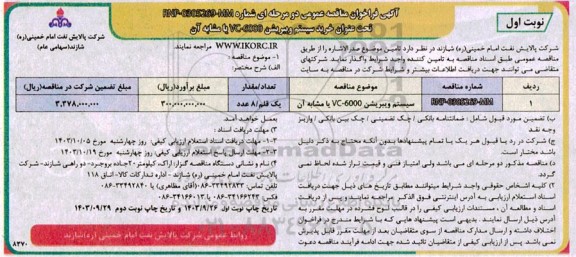 نوبت اول
آگهی فراخوان مناقصه عمومی دو مرحله ای شماره RNF-0305269-MM
تحت عنوان خرید سیستم ویبریشن VC-6000 یا مشابه آن
شرکت پالایش نفت امام خمینی(ره)
شازند(سهامی عام)
شرکت پالایش نفت امام خمینی(ره) شازند در نظر دارد تامین موضوع صدرالاشاره را از طریق
مناقصه عمومی طبق اسناد مناقصه به تامین کننده واجد شرایط واگذار نماید شرکتهای
متقاضی می توانند جهت دریافت اطلاعات بیشتر و شرایط شرکت در مناقصه به سایت
WWW.IKORC.IR مراجعه نمایند.
۱- موضوع مناقصه :
الف) شرح مختصر:
ردیف شماره مناقصه موضوع مناقصه تعداد/مقدار مبلغ برآورد(ریال) مبلغ تضمین شرکت در مناقصه(ریال)
۱ RNF-0305269-MM سیستم ویبریشن VC-6000 یا مشابه آن یک قلم/۸ عدد ۳۰۰,۰۰۰,۰۰۰,۰۰۰ ۳,۳۷۸,۰۰۰,۰۰۰
ب) تضمین مورد قبول شامل : ضمانتنامه بانکی / چک تضمینی / چک بین بانکی / واریز
وجه نقد
ج) شرکت در رد یا قبول هر یک یا تمام پیشنهادها بدون آنکه محتاج به ذکر دلیل
باشد مختار است.
د) مناقصه مذکور دو مرحله ای می باشد ولی امتیاز فنی و قیمت تراز شده لحاظ نمی
گردد.
۲) کلیه اشخاص حقوقی واجد شرایط میتوانند مطابق تاریخ های ذیل جهت دریافت
اسناد ارزیابی به آدرس اینترنتی فوق الذکر مراجعه نمایند و پس از دریافت
و مطالعه آن، مستندات ارزیابی کیفی را در قالب لوح فشرده در مهلت مقرر به
آدرس ذیل ارسال نمایند. بدیهی است پیشنهاد هایی که با شرایط مندرج در فراخوان
اختلاف داشته و ارسال مدارک مناقصه از سوی متقاضیان بعد از مهلت مقرر قابل پذیرش
نمی باشد. پس از ارزیابی کیفی از متقاضیان تائید شده جهت ادامه فرآیند مناقصه دعوت
بعمل خواهد آمد.
۳) مهلت دریافت اسناد :
۳-۱- مهلت دریافت اسناد استعلام ارزیابی کیفی: روز چهارشنبه مورخ ۱۴۰۳/۱۰/۰۵
۳-۲- مهلت ارسال پاسخ استعلام ارزیابی کیفی: روز چهارشنبه مورخ ۱۴۰۳/۱۰/۱۹
۴) نام و نشانی دستگاه مناقصه گزار: اراک، کیلومتر ۲۰ جاده بروجرد- دو راهی شازند- شرکت
پالایش نفت امام خمینی (ره) شازند - اداره تدارکات کالا- اتاق ۱۱۸
روابط عمومی شرکت پالایش نفت امام خمینی (ره)شازند
۸۲۷۰